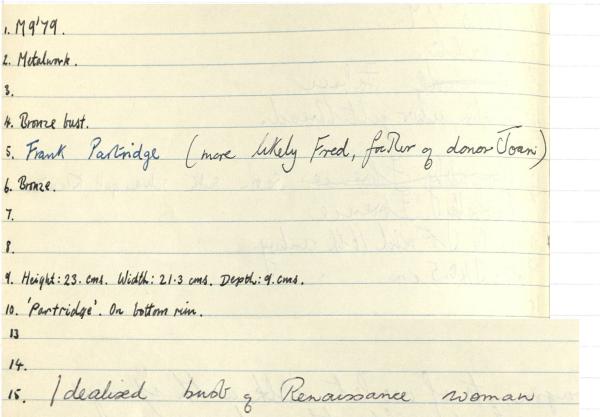 1. M9'79.
2. Metalwork.
3.
4. Bronze bust.
5. Frank Partridge (more likely Fred, father of donor Joan)
6. Bronze.
7.
8.
9. Height: 23. cms. Width: 21.3 cms. Depth: 9. cms.
10. 'Partridge'. On bottom rim.
13
14.
15. Idealised bust of Renaissance woman